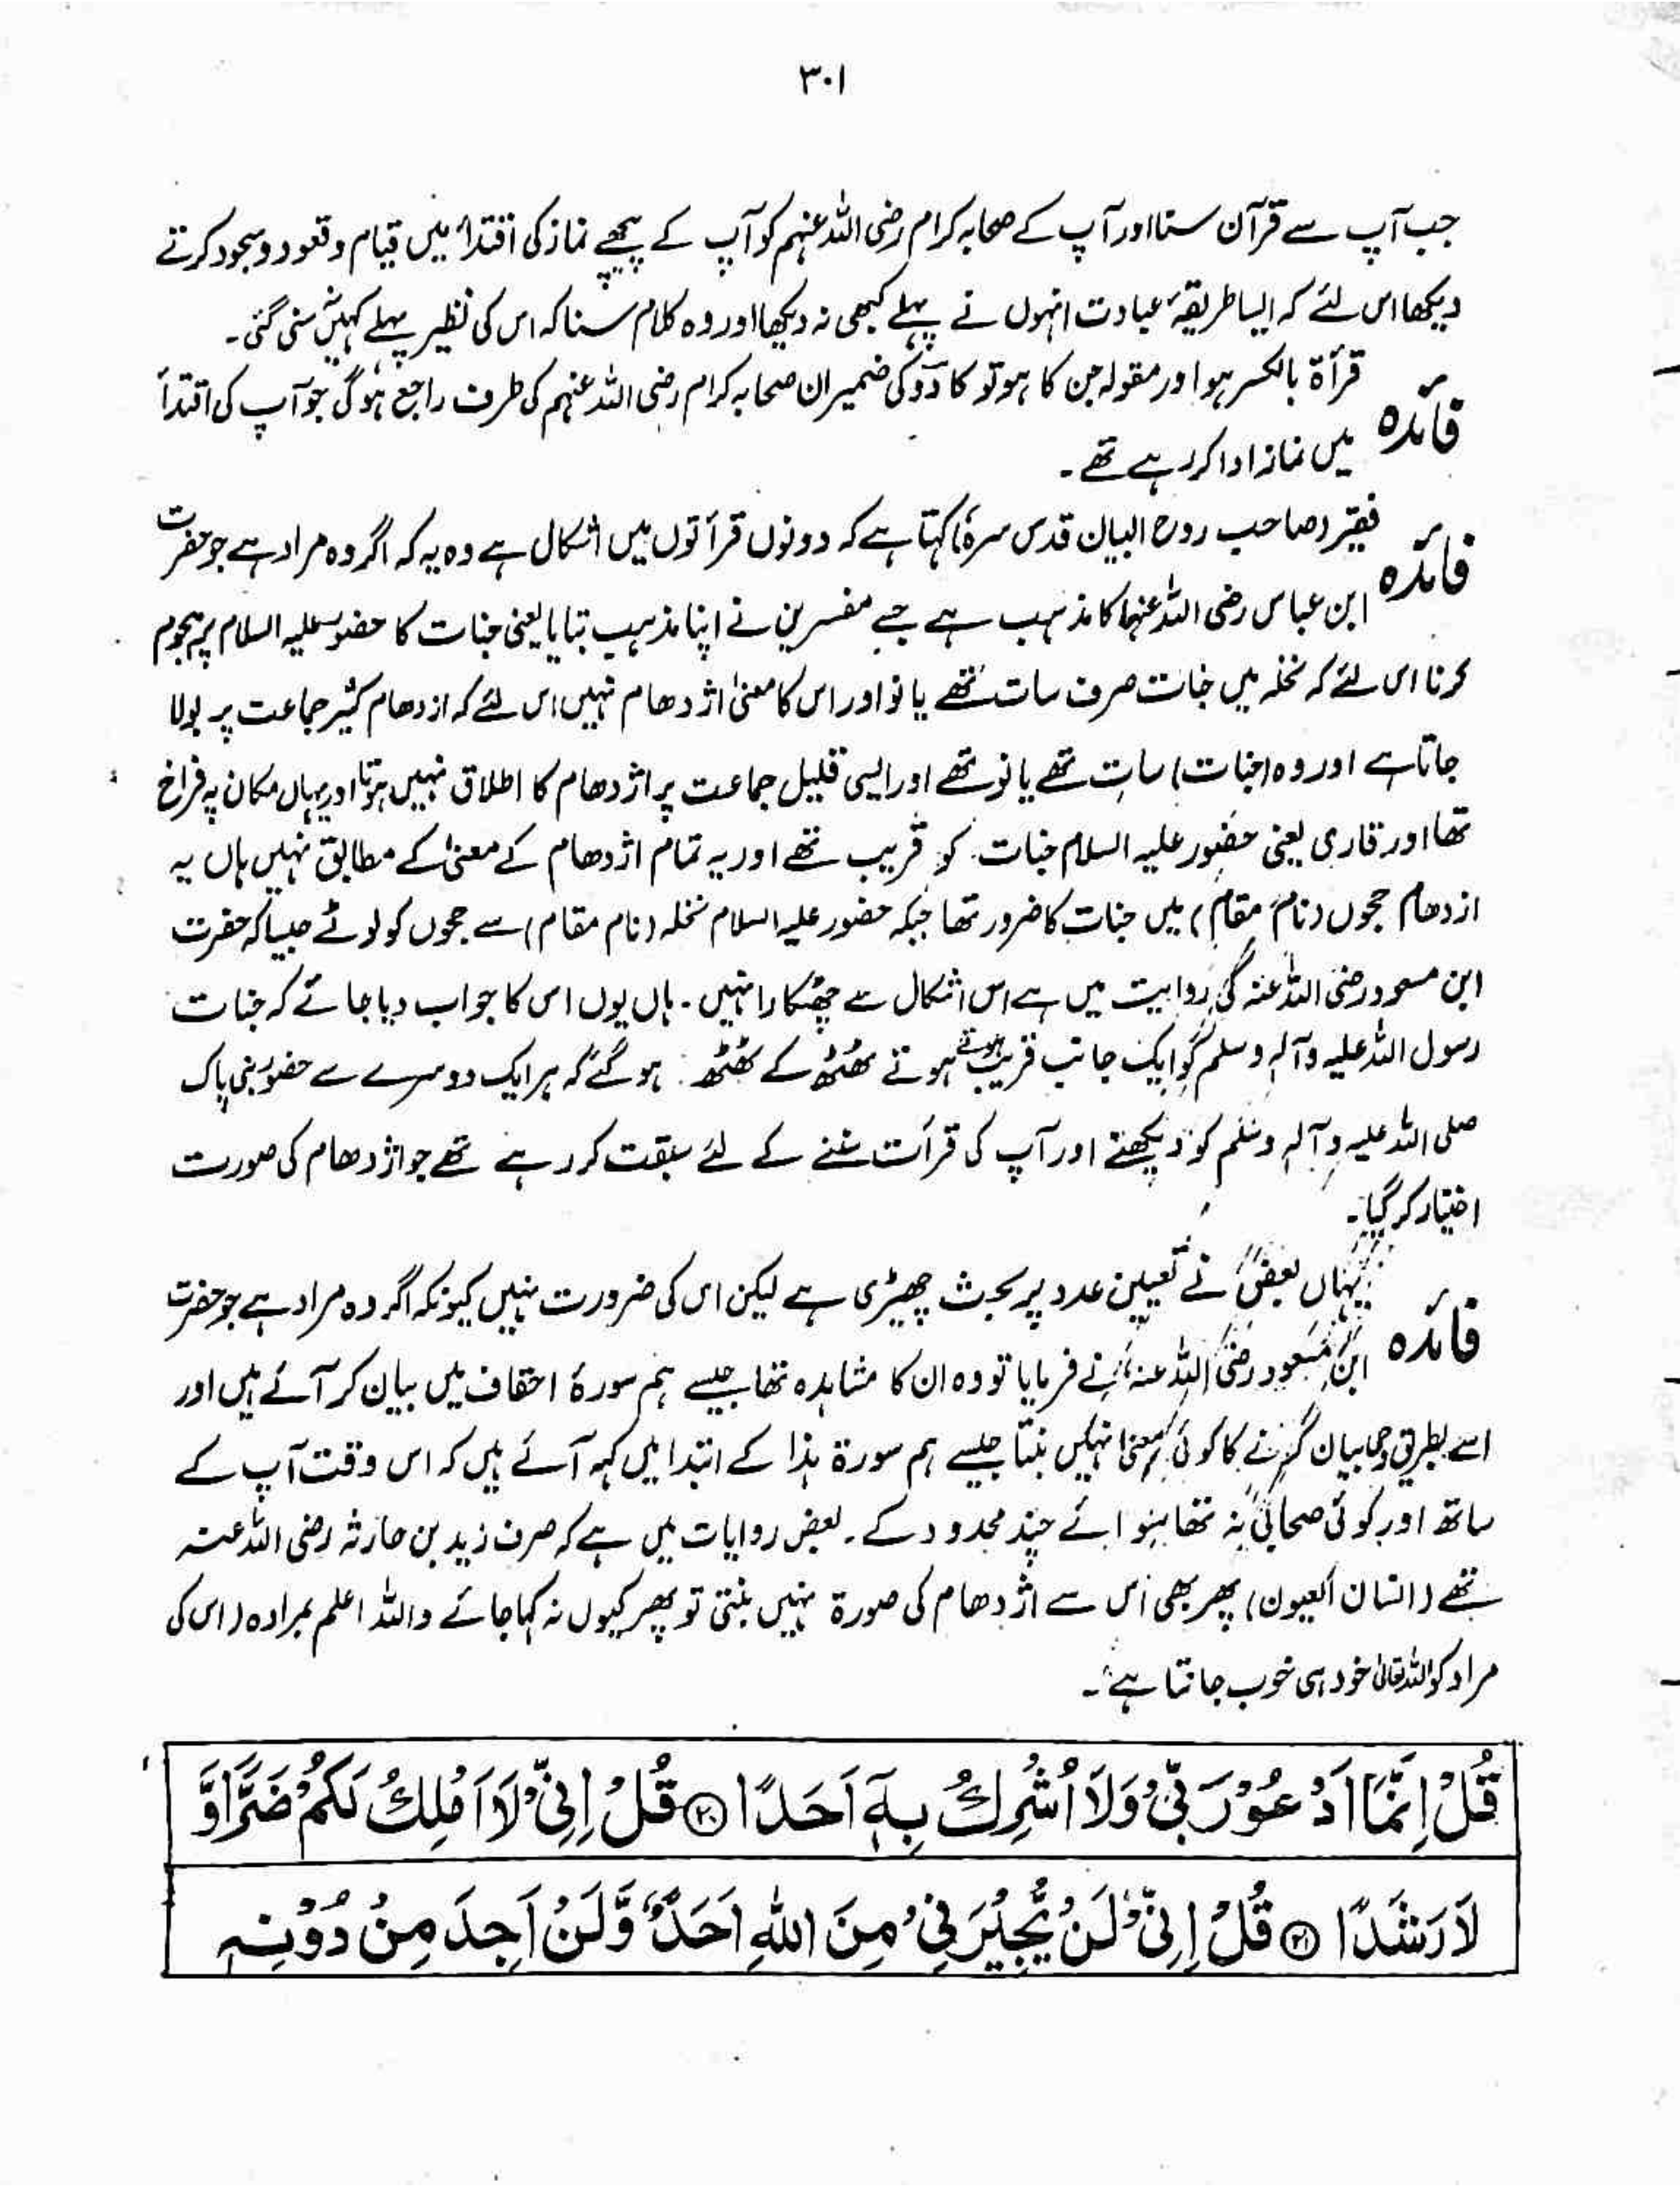 ۳۰۱
جب آپ سے قرآن سنا اور آپ کے صحابہ کرام رضی اللہ عنہم کو آپ کے پیچھے نماز کی اقتداء میں قیام و قعود و سجود کرتے
دیکھا اس لئے کہ ایسا طریقۂ عبادت انہوں نے پہلے کبھی نہ دیکھا اور وہ کلام سنا کہ اس کی نظیر پہلے کہیں سنی گئی۔
فائدہ قرأۃ بالکسر ہو اور مقولہ جن کا ہو تو کادوٓ کی ضمیر ان صحابہ کرام رضی اللہ عنہم کی طرف راجع ہوگی جو آپ کی اقتدأ
میں نماز ادا کر رہے تھے۔
فائدہ فقیر (صاحب روح البیان قدس سرہٗ) کہتا ہے کہ دونوں قرأتوں میں اشکال ہے وہ یہ کہ اگر وہ مراد ہے جو حضرت
ابن عباس رضی اللہ عنہما کا مذہب ہے جسے مفسرین نے اپنا مذہب بتایا یعنی جنات کا حضور علیہ السلام پر ہجوم
کرنا اس لئے کہ نخلہ میں جنات صرف سات تھے یا نو اور اس کا معنیٰ اژدھام نہیں اس لئے کہ ازدھام کثیر جماعت پر بولا
جاتا ہے اور وہ (جنات) سات تھے یا نو تھے اور ایسی قلیل جماعت پر اژدھام کا اطلاق نہیں ہوتا اور یہاں مکان پہ فراخ
تھا اور قاری یعنی حضور علیہ السلام جنات کو قریب تھے اور یہ تمام اژدھام کے معنیٰ کے مطابق نہیں ہاں یہ
ازدھام حجون (نام مقام) میں جنات کا ضرور تھا جبکہ حضور علیہ السلام نخلہ (نام مقام) سے حجون کو لوٹے جیسا کہ حضرت
ابن مسعود رضی اللہ عنہ کی روایت میں ہے اس اشکال سے چھٹکارا نہیں۔ ہاں یوں اس کا جواب دیا جائے کہ جنات
رسول اللہ علیہ وآلہٖ وسلم کو ایک جانب قریب ہوتے ہوتے ٹھٹھ کے ٹھٹھ ہو گئے کہ ہر ایک دوسرے سے حضور نبی پاک
صلی اللہ علیہ وآلہٖ وسلم کو دیکھنے اور آپ کی قرأت سننے کے لئے سبقت کر رہے تھے جو اژدھام کی صورت
اختیار کر گیا۔
فائدہ یہاں بعض نے تعیین عدد پر بحث چھیڑی ہے لیکن اس کی ضرورت نہیں کیونکہ اگر وہ مراد ہے جو حضرت
ابن مسعود رضی اللہ عنہ نے فرمایا تو وہ ان کا مشاہدہ تھا جیسے ہم سورۂ احقاف میں بیان کر آئے ہیں اور
اسے بطریق وحی بیان کرنے کا کوئی معنیٰ نہیں بنتا جیسے ہم سورۃ ہذا کے ابتدا میں کہہ آئے ہیں کہ اس وقت آپ کے
ساتھ اور کوئی صحابی نہ تھا سوائے چند محدود کے۔ بعض روایات میں ہے کہ صرف زید بن حارثہ رضی اللہ عنہ
تھے (انسان العیون) پھر بھی اس سے اژدھام کی صورۃ نہیں بنتی تو پھر کیوں نہ کہا جائے واللہ اعلم بمرادہ (اس کی
مراد کو اللہ تعالیٰ خود ہی خوب جانتا ہے)۔
قُلْ اِنَّمَآ اَدْعُوْ رَبِّیْ وَلَآ اُشْرِكُ بِهٖٓ اَحَدًا ۲۰ قُلْ اِنِّیْ لَآ اَمْلِكُ لَكُمْ ضَرًّا وَّ
لَا رَشَدًا ۲۱ قُلْ اِنِّیْ لَنْ یُّجِیْرَنِیْ مِنَ اللّٰهِ اَحَدٌ وَّ لَنْ اَجِدَ مِنْ دُوْنِهٖ